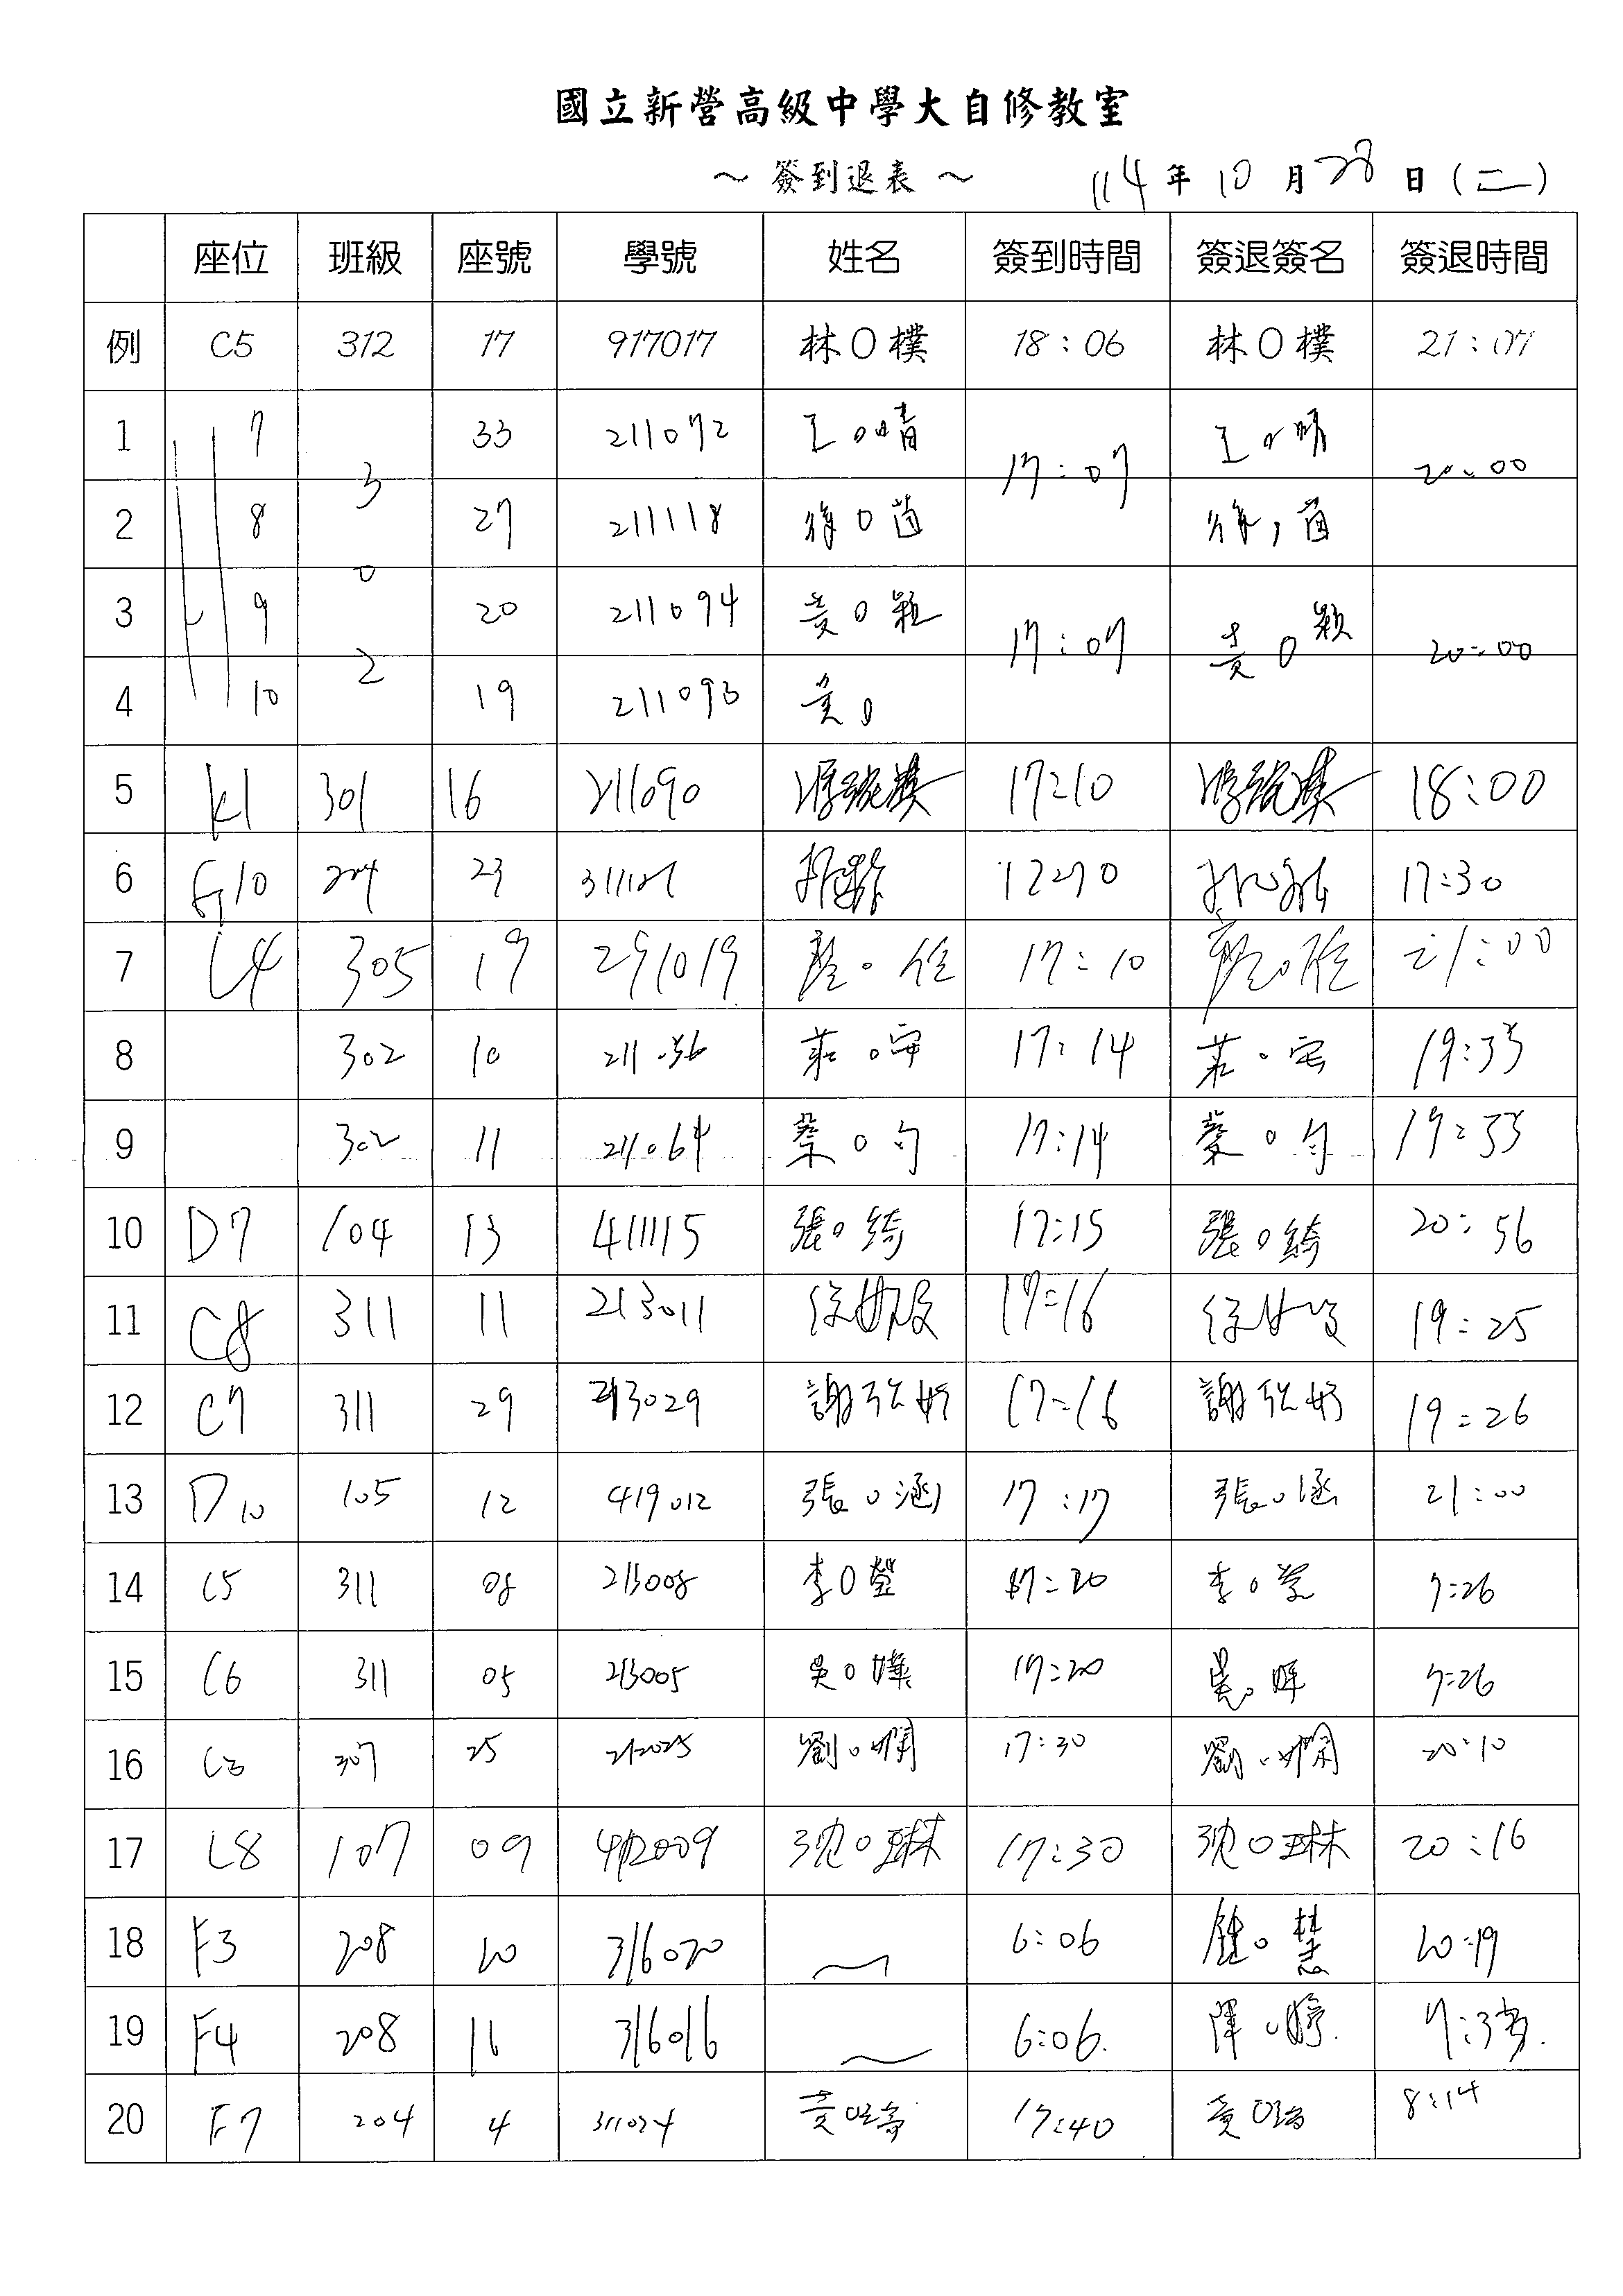 國立新營高級中學大自修教室
～ 簽到退表 ～ 114 年 10 月 28 日 (二)
座位 班級 座號 學號 姓名 簽到時間 簽退簽名 簽退時間
例 C5 312 17 917017 林O樸 18:06 林O樸 21:07
1 7 33 211072 王O晴 17:07 王O晴 20:00
2 8 3 27 211118 徐O茵 徐O茵
3 L 9 0 20 211094 黃O穎 17:07 黃O穎 20:00
4 10 2 19 211093 黃O
5 K1 301 16 211090 17:10 18:00
6 G10 204 23 17:30
7 L4 305 19 291019 17:10 21:00
8 302 10 211056 莊O安 17:14 莊O安 19:33
9 302 11 211064 蔡O勻 17:14 蔡O勻 19:33
10 D7 104 13 411115 張O綺 17:15 張O綺 20:56
11 C8 311 11 213011 17:16 19:25
12 C7 311 29 213029 謝 17:16 謝 19:26
13 D10 105 12 419012 張O涵 17:17 張O涵 21:00
14 C5 311 08 213008 李O瑩 17:20 李O瑩 7:26
15 C6 311 05 213005 吳O嬅 17:20 吳O 7:26
16 307 25 212025 劉O嫻 17:30 劉O嫻 20:10
17 L8 107 09 412009 沈O琳 17:30 沈O琳 20:16
18 F3 208 20 316020 6:06 鍾O慧 20:19
19 F4 208 16 316016 6:06. 陳O婷. 7:3
20 F7 204 4 311034 黃O 17:40 黃O 8:14